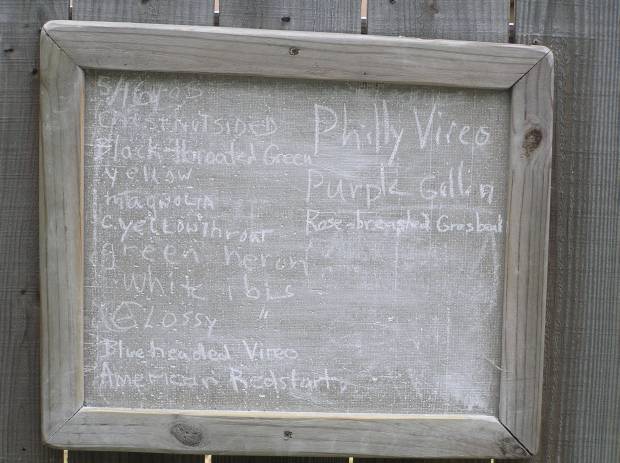 CHESTNUTSIDED
Black-throated Green
yellow
magnolia
C. yellowthroat
green heron
White ibis
GLOSSY "
Blueheaded Vireo
American Redstart
Philly Vireo
Purple Gallin
Rose-breasted Grosbeak